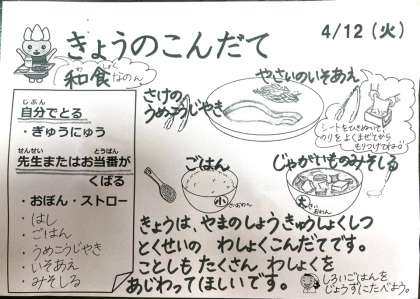 きょうのこんだて
4/12 (火)
和食なのん♪
じぶん
自分でとる
・ぎゅうにゅう
せんせい とうばん
先生またはお当番が
くばる
・おぼん・ストロー
・はし
・ごはん
・うめこうじやき
・いそあえ
・みそしる
さけの
うめこうじやき
やさいのいそあえ
シートをひきぬいて、
のりをよくまぜてから
もりつけてね
ごはん
小
じゃがいものみそしる
大
きょうは、やまのしょうきゅうしょくしつ
とくせいの わしょくこんだてです。
ことしも たくさん、わしょくを
あじわってほしいです。
しろいごはんを
じょうずにたべよう。